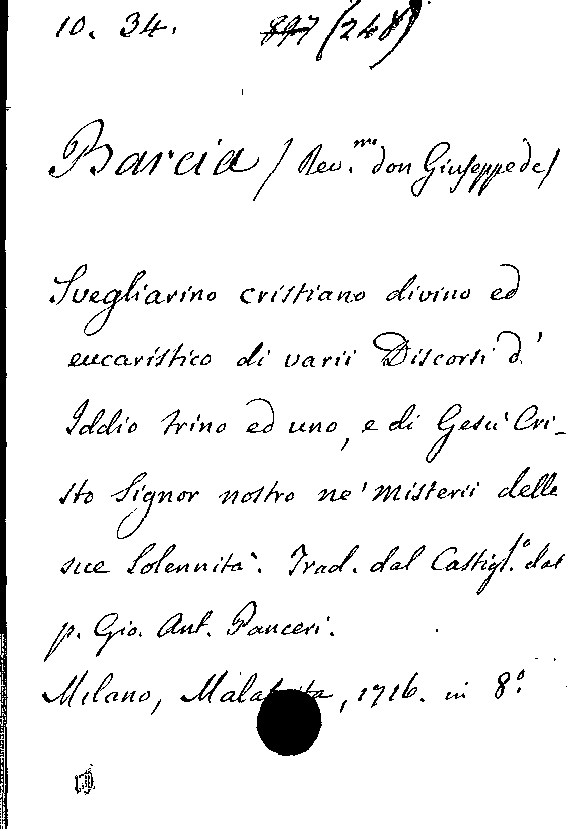 10. 34. 897 (248)
Barcia / Rev.mo don Giuseppe de/
Svegliarino cristiano divino ed
eucaristico di varii Discorsi d'
Iddio trino ed uno, e di Gesù Cri-
sto Signor nostro ne' misterii delle
sue Solennità. Trad. dal Castigl.o dal
p. Gio. Ant. Panceri.
Milano, , 1716. in 8.o